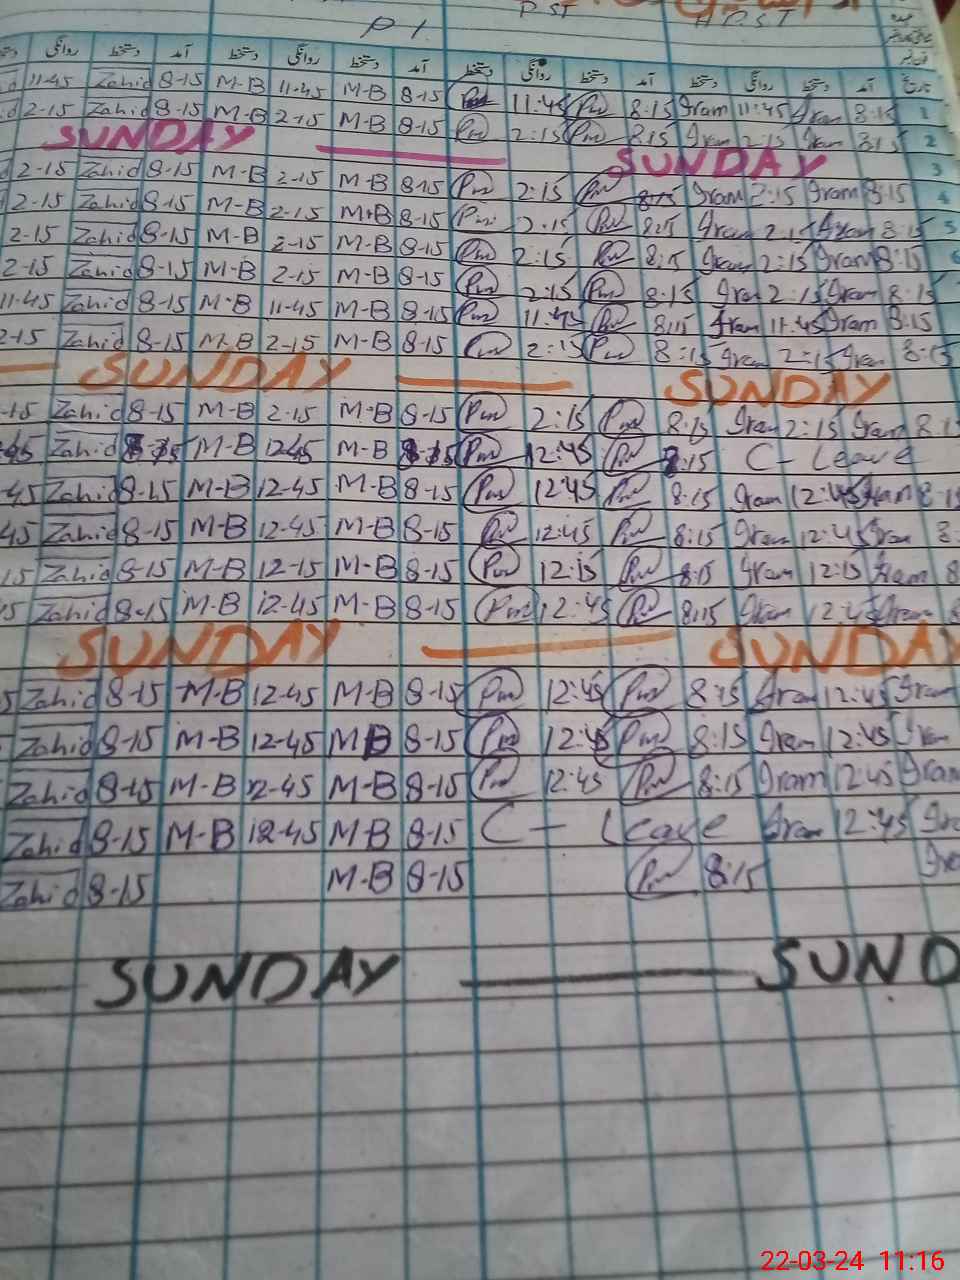 P1. PST HPST
دستخط روانگی دستخط آمد دستخط روانگی دستخط آمد دستخط روانگی دستخط آمد دستخط روانگی دستخط آمد تاریخ
11-45 Zahid 8-15 M-B 11-45 M-B 8-15 11:45 8:15 Gram 11:45 Gram 8:15 1
2-15 Zahid 8-15 M-B 2-15 M-B 8-15 2:15 8:15 Gram 2:15 Gram 8:15 2
SUNDAY SUNDAY 3
2-15 Zahid 8-15 M-B 2-15 M-B 8-15 2:15 8:15 Gram 2:15 Gram 8:15 4
2-15 Zahid 8-15 M-B 2-15 M-B 8-15 2:15 8:15 Gram 2:15 Gram 8:15 5
2-15 Zahid 8-15 M-B 2-15 M-B 8-15 2:15 8:15 Gram 2:15 Gram 8:15 6
2-15 Zahid 8-15 M-B 2-15 M-B 8-15 2:15 8:15 Gram 2:15 Gram 8:15
11-45 Zahid 8-15 M-B 11-45 M-B 8-15 11:45 8:15 Gram 11:45 Gram 8:15
2-15 Zahid 8-15 M-B 2-15 M-B 8-15 2:15 8:15 Gram 2:15 Gram 8:15
SUNDAY SUNDAY
-15 Zahid 8-15 M-B 2-15 M-B 8-15 2:15 8:15 Gram 2:15 Gram 8:1
45 Zahid 8-15 M-B 12-45 M-B 8-15 12:45 8:15 C-Leave
45 Zahid 8-15 M-B 12-45 M-B 8-15 12:45 8:15 Gram 12:45 Gram 8-15
45 Zahid 8-15 M-B 12-45 M-B 8-15 12:45 8:15 Gram 12:45 Gram 8:
15 Zahid 8-15 M-B 12-15 M-B 8-15 12:15 8:15 Gram 12:15 Gram 8
5 Zahid 8-15 M-B 12-45 M-B 8-15 12:45 8:15 Gram 12:45 Gram 8
SUNDAY SUNDAY
5 Zahid 8-15 M-B 12-45 M-B 8-15 12:45 8:15 Gram 12:45 Gram
Zahid 8-15 M-B 12-45 M-B 8-15 12:45 8:15 Gram 12:45 Gram
Zahid 8-15 M-B 12-45 M-B 8-15 12:45 8:15 Gram 12:45 Gram
Zahid 8-15 M-B 12-45 M-B 8-15 C-Leave Gram 12:45 Gra
Zahid 8-15 M-B 8-15 8:15 Gra
SUNDAY SUND
22-03-24 11:16